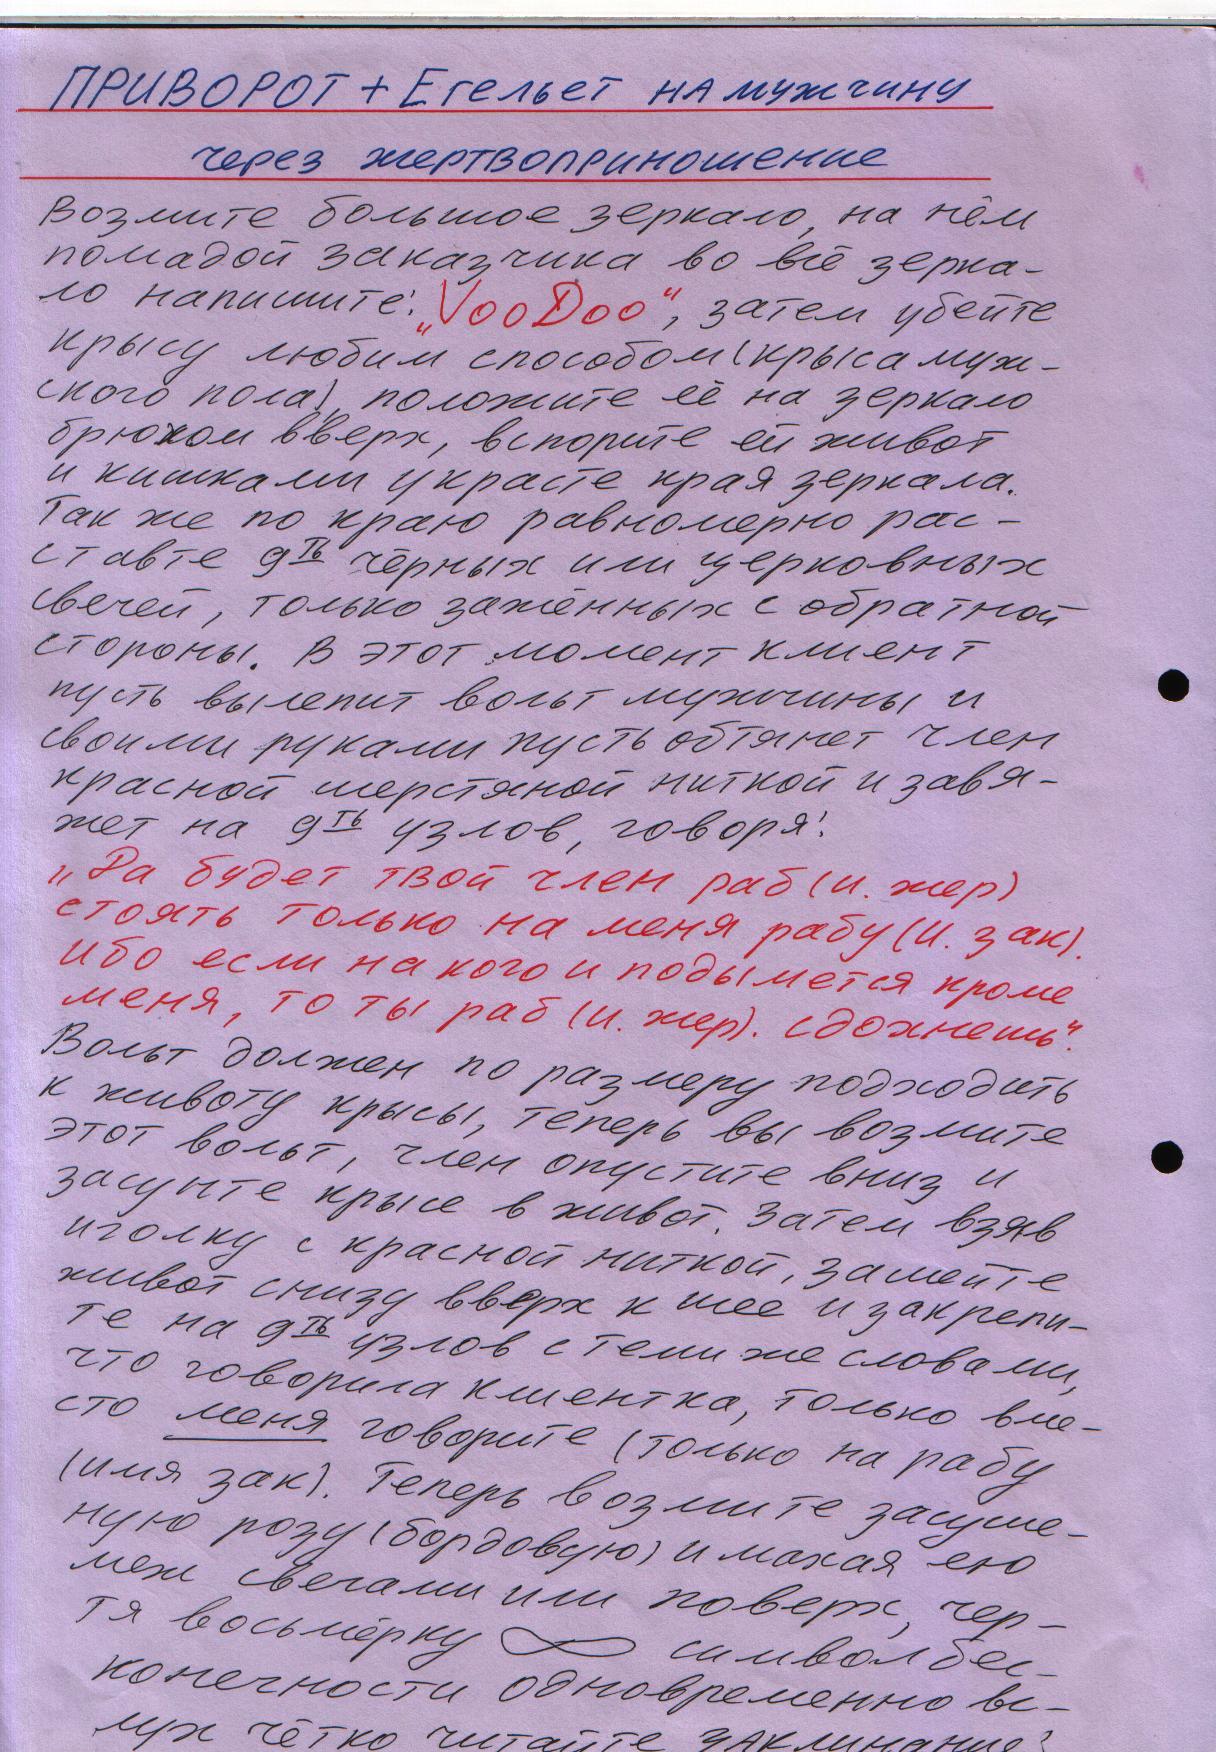 ПРИВОРОТ + Егельет на мужчину
через жертвоприношение
Возмите большое зеркало, на нём
помадой заказчика во всё зерка-
ло напишите: „VooDoo", затем убейте
крысу любим способом (крыса муж-
ского пола), положите её на зеркало
брюхом вверх, вспорите ей живот
и кишками украсте края зеркала.
Так же по краю равномерно рас-
ставте 9ть чёрных или церковных
свечей, только зажённых с обратной
стороны. В этот момент клиент
пусть вылепит вольт мужчины и
своими руками пусть обтянет член
красной шерстяной ниткой и завя-
жет на 9ть узлов, говоря:
„Да будет твой член раб (и. жер)
стоять только на меня рабу (и. зак).
Ибо если на кого и подымется кроме
меня, то ты раб (и. жер). сдохнешь".
Вольт должен по размеру подходить
к животу крысы, теперь вы возмите
этот вольт, член опустите вниз и
засуньте крысе в живот. Затем взяв
иголку с красной ниткой, зашейте
живот снизу вверх к шее и закрепи-
те на 9ть узлов с теми же словами,
что говорила клиентка, только вме-
сто меня говорите (только на рабу
(имя зак). Теперь возмите засуше-
ную розу (бордовую) и махая ею
меж свечами или поверх, чер-
тя восьмёрку ∞ символ бес-
конечности одновременно вс-
лух чётко читайте заклинание: